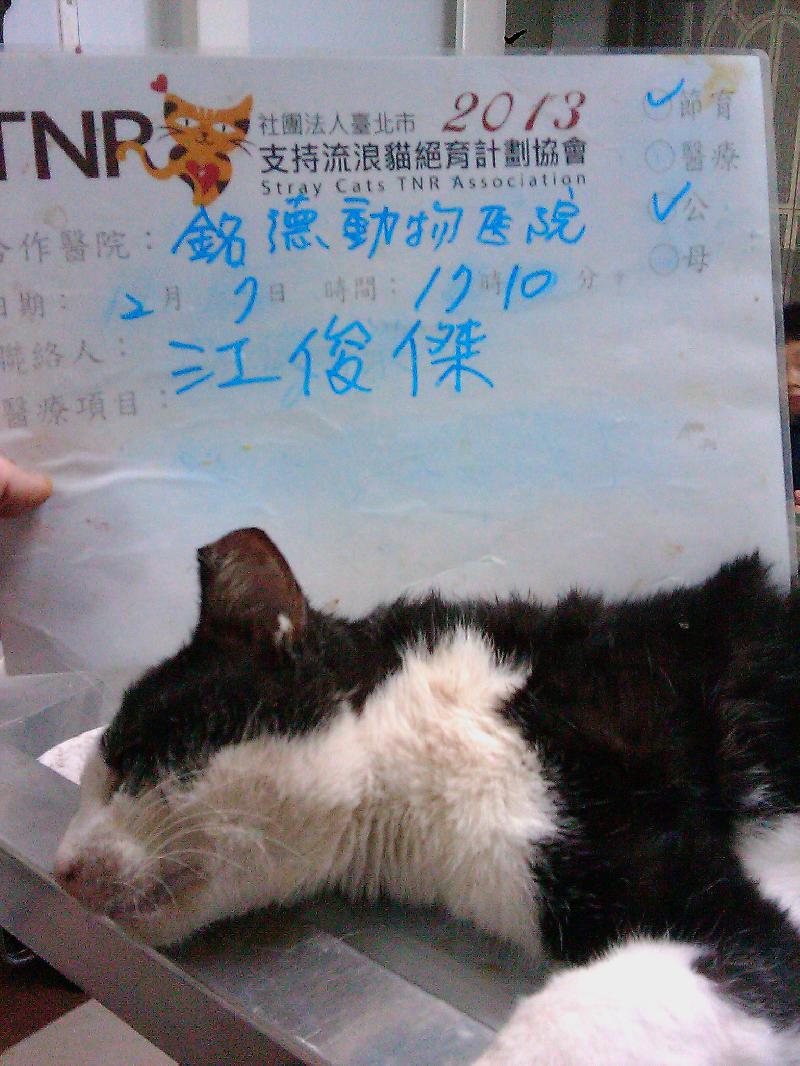 TNR 社團法人臺北市 2013
支持流浪貓絕育計劃協會
Stray Cats TNR Association
節育
醫療
公
母
合作醫院：銘德動物医院
日期：12月7日 時間：17時10分
聯絡人：江俊傑
醫療項目：